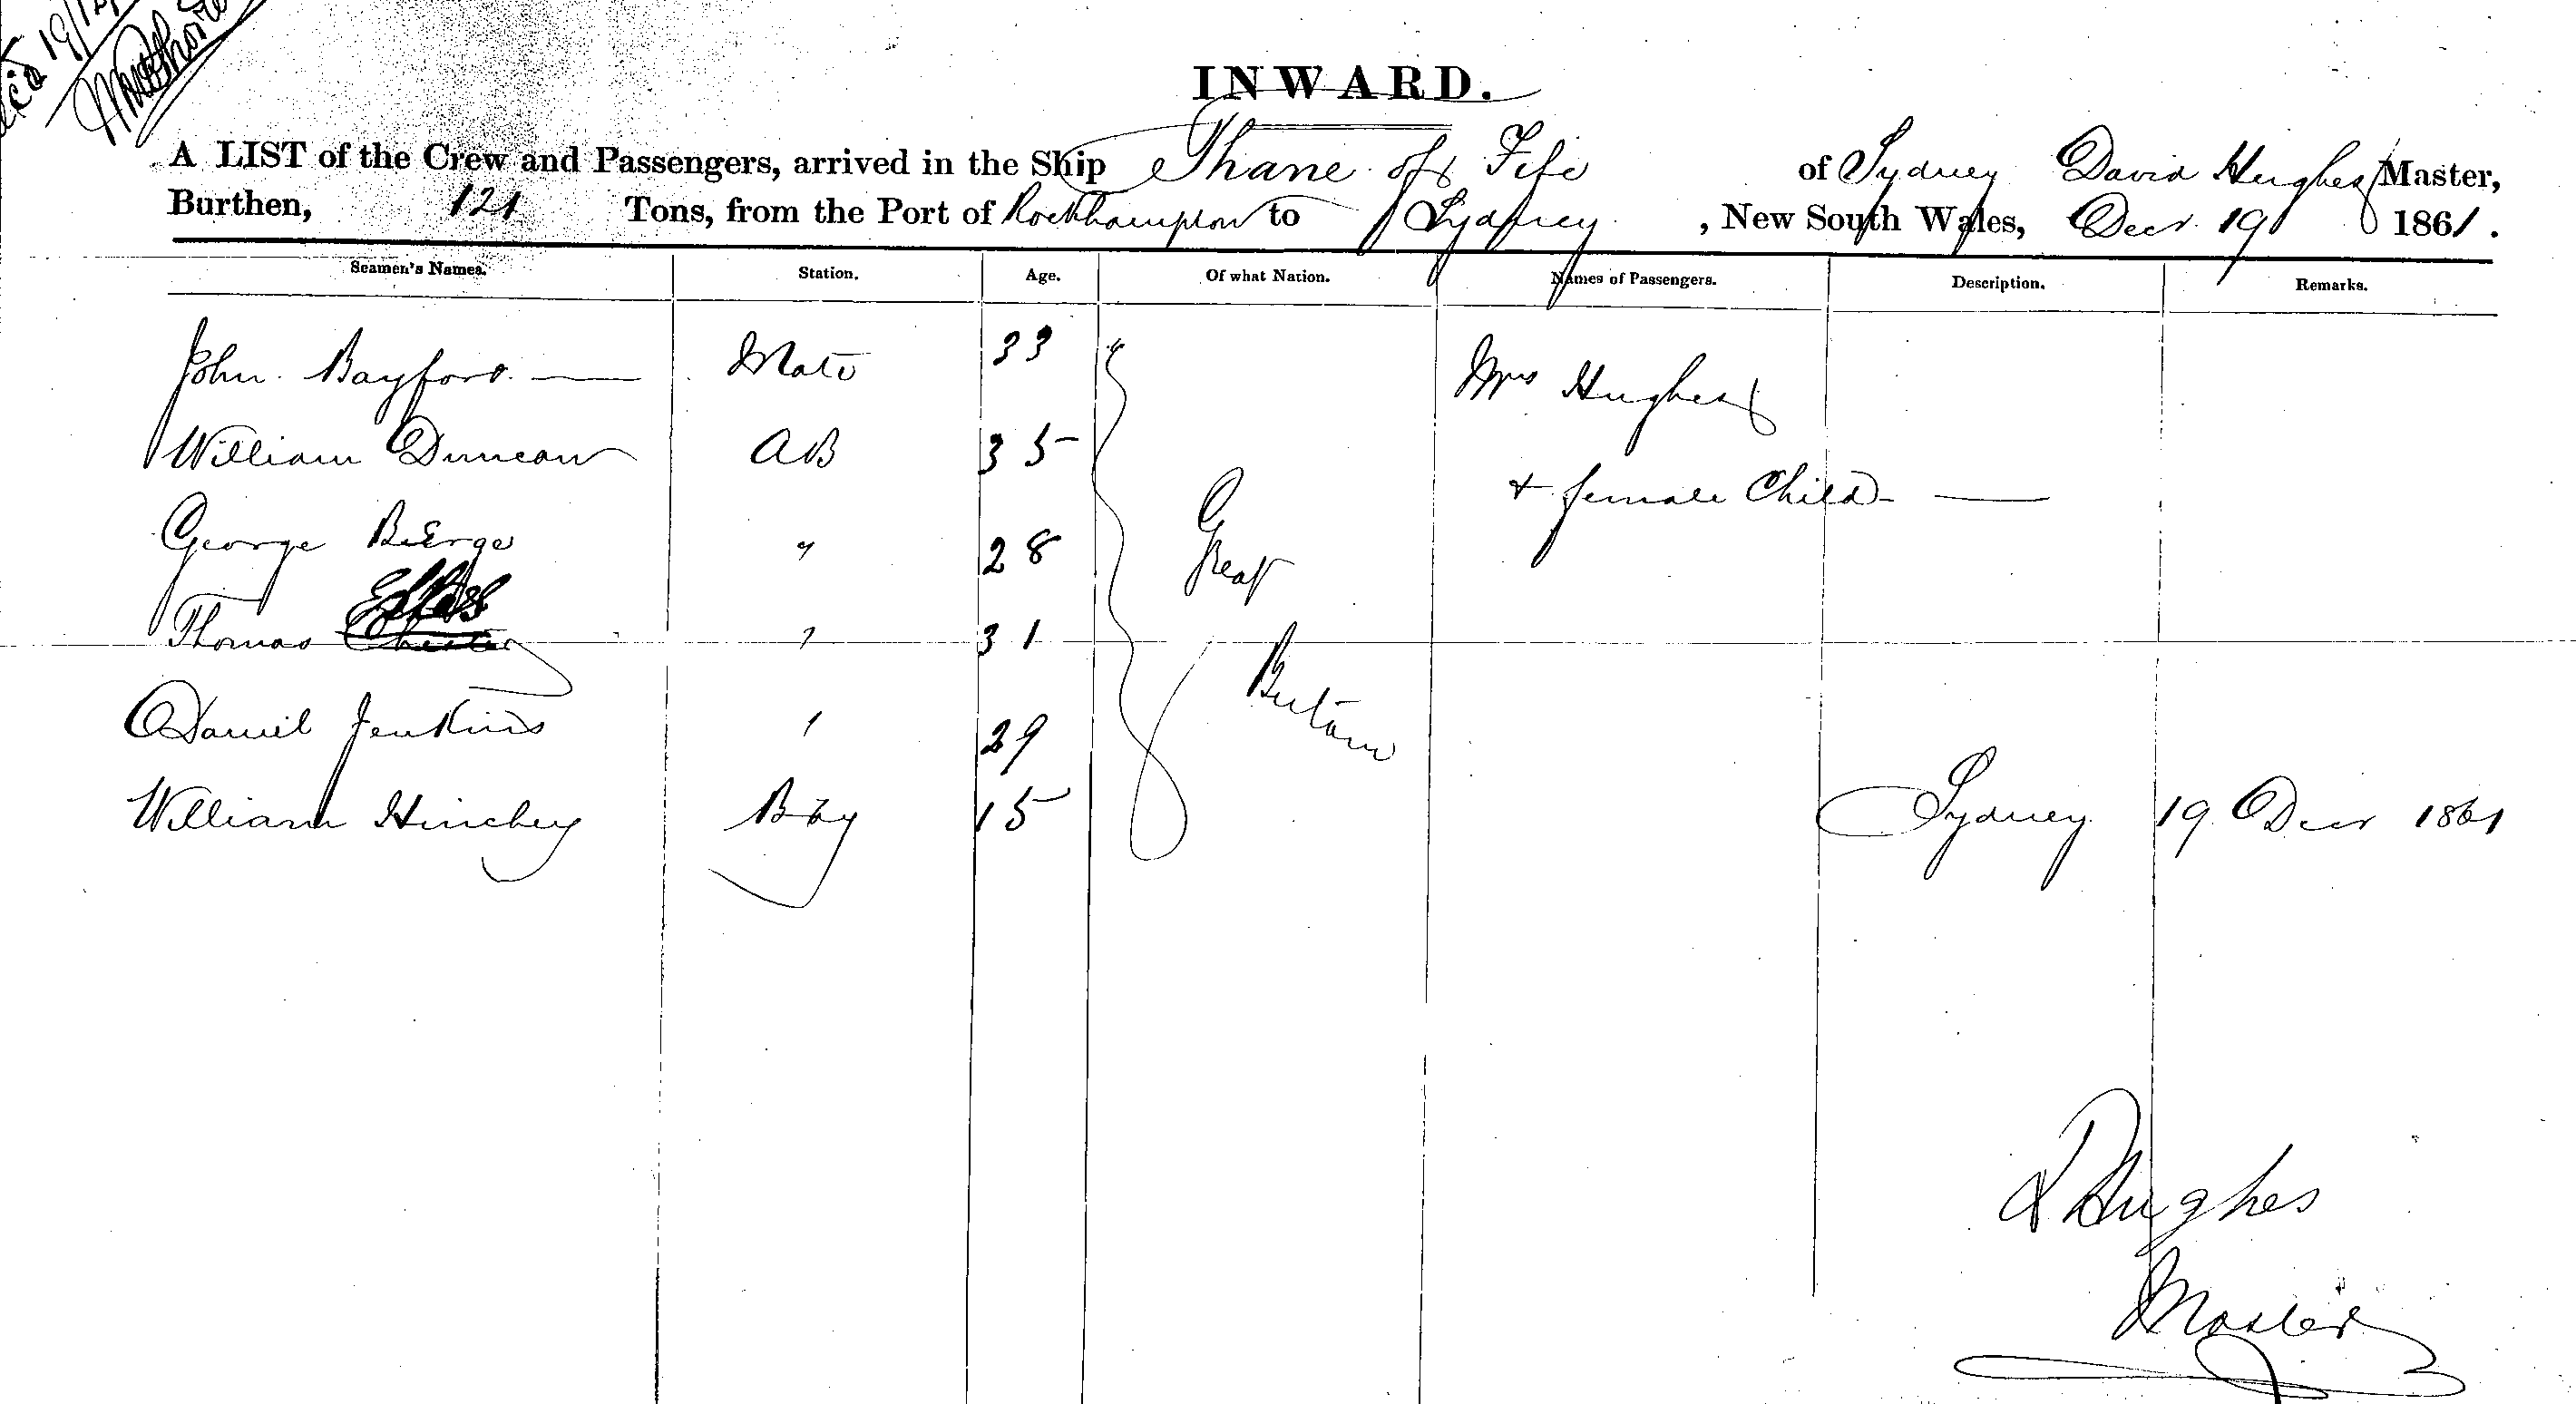 19/12
INWARD.
A LIST of the Crew and Passengers, arrived in the Ship Thane of Fife of Sydney David Hughes Master,
Burthen, 121 Tons, from the Port of Rockhampton to Sydney, New South Wales, Decr 19 1861.
Seamen's Names. Station. Age. Of what Nation. Names of Passengers. Description. Remarks.
John Bayford Mate 33 Mrs Hughes
William Duncan AB 35
& female Child
George " 28 Great
Thomas " 31
Britain
Daniel Jenkins " 29
William Hinchey Boy 15 Sydney 19 Decr 1861
D Hughes
Master